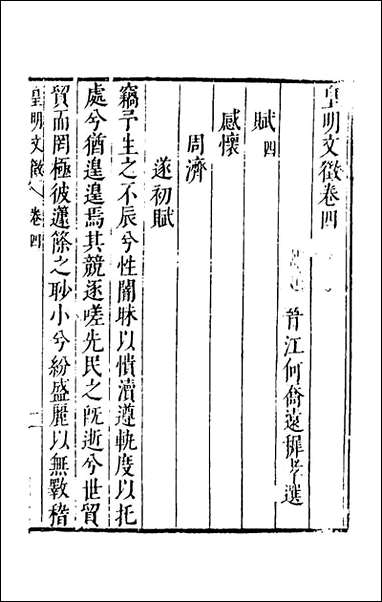 皇明文徵卷四
晉江何喬遠穉孝選
賦四
感懷
周濟
遂初賦
竊予生之不辰兮性闇昧以憒瀆遵軌度以托
處兮猶遑遑焉其競逐嗟先民之旣逝兮世貿
貿而罔極彼蘧篨之眇小兮紛盛麗以無斁稽
皇明文徵 卷四 一